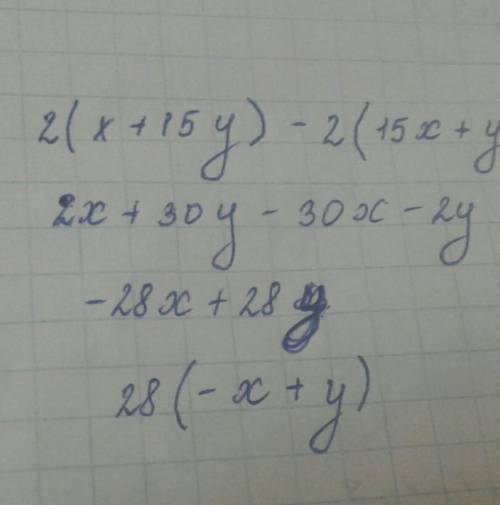 2(x+15y)-2(15x+y
2x+30y-30x-2y
-28x+28y
28(-x+y)